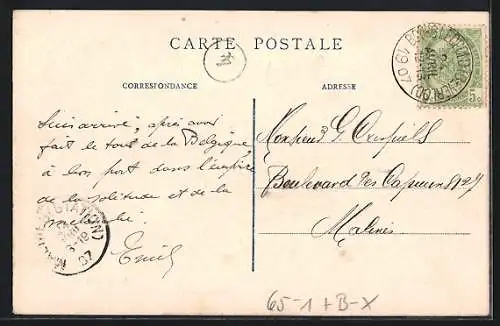 CARTE POSTALE
CORRESPONDANCE
ADRESSE
Suis arrivé, après avoir
fait le tour de la Belgique
à bon port dans l'empire
de la solitude et de la
Emile
Monsieur G.
Boulevard des Capucins 27
Malines
5c
(STATION)
07
19 07
65-1+B-X